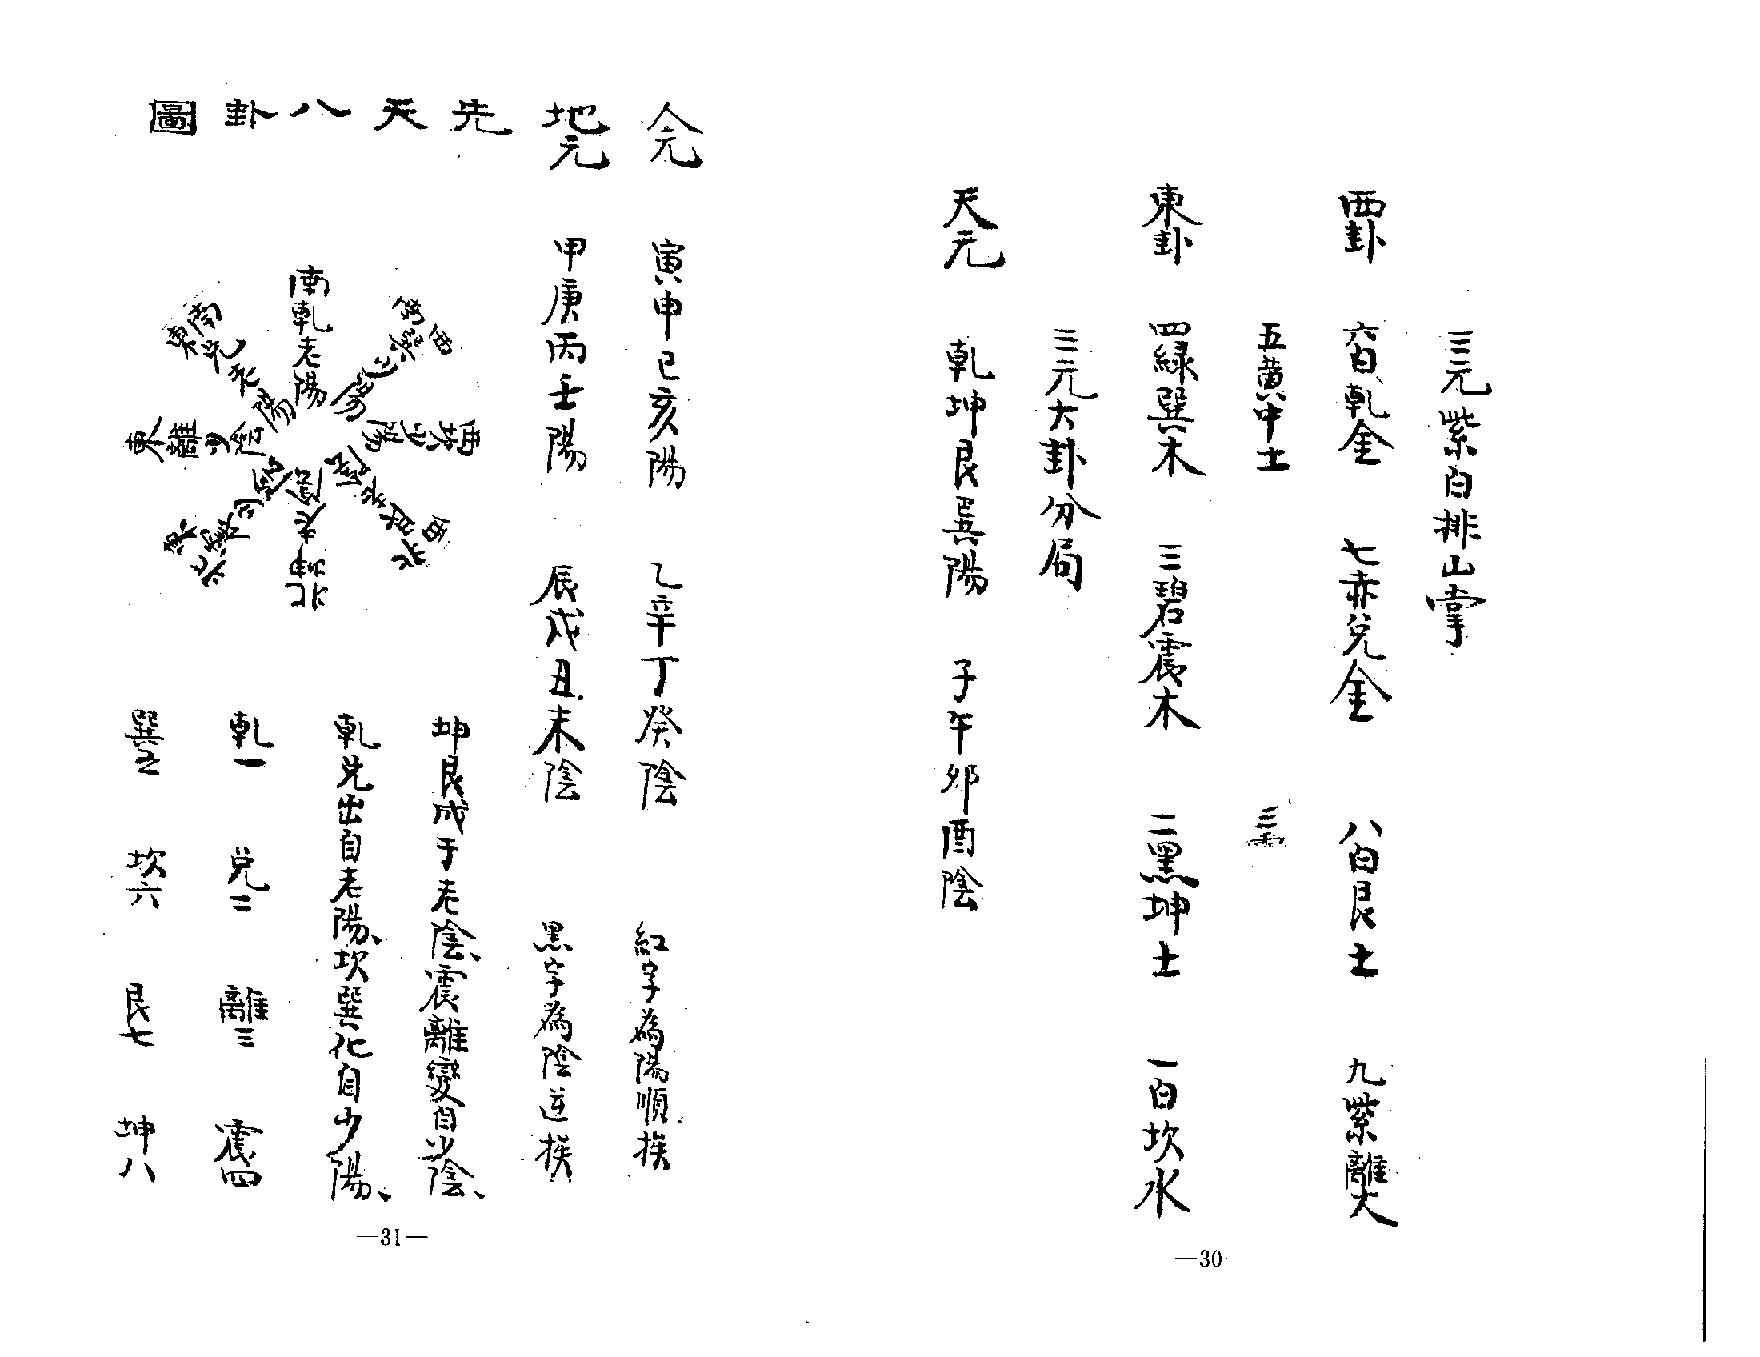 三元紫白排山掌
西卦 六白乾金 七赤兌金 八白艮土 九紫離火
五黃中土
東卦 四綠巽木 三碧震木 二黑坤土 一白坎水
三元大卦分局
天元 乾坤艮巽陽 子午卯酉陰
—30
人元 寅申巳亥陽 乙辛丁癸陰 紅字為陽順挨
地元 甲庚丙壬陽 辰戌丑未陰 黑字為陰逆挨
先天八卦圖
南乾老陽
東南兌老陽
東離少陰
東北震少陰
北坤老陰
西北艮老陰
西坎少陽
西南巽少陽
坤艮成于老陰、震離變自少陰、
乾兌出自老陽、坎巽化自少陽、
乾一 兌二 離三 震四
巽五 坎六 艮七 坤八
—31—